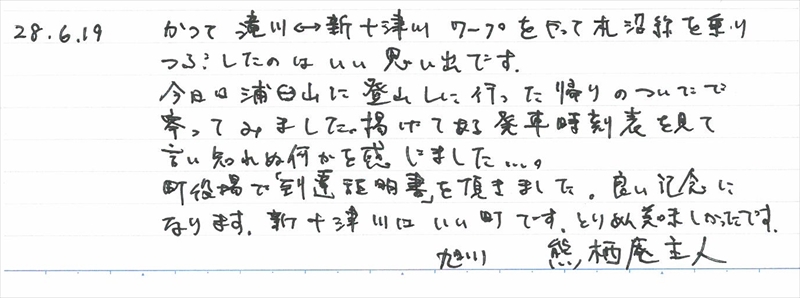 28.6.19 かつて滝川↔新十津川ワープをやって札沼線を乗り
つぶしたのはいい思い出です。
今日は浦臼山に登山しに行った帰りのついでで
寄ってみました。掲げてある発車時刻表を見て
言い知れぬ何かを感じました…。
町役場で「到達証明書」を頂きました。良い記念に
なります。新十津川はいい町です。とりめし美味しかったです。
旭川 熊栖庵主人